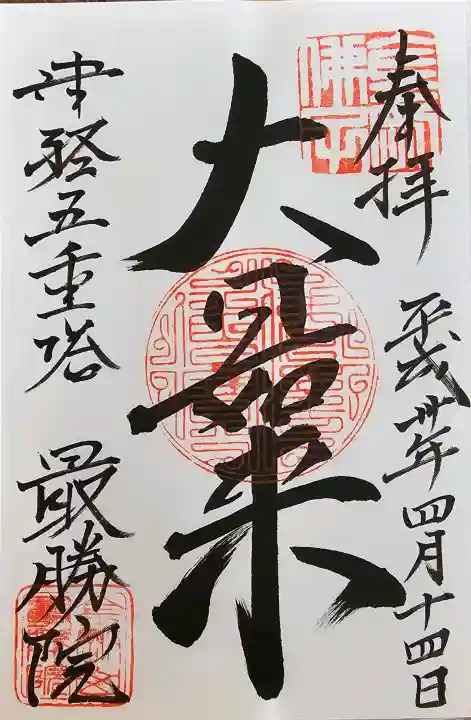 奉拝
平成卅年四月十四日
大日如来
津軽五重塔
最勝院